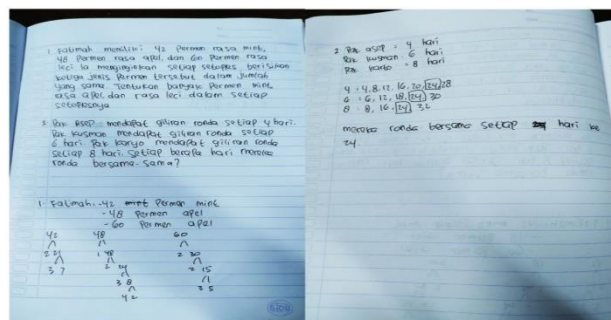 1. Fatimah memiliki 42 permen rasa mint,
48 Permen rasa apel, dan 60 Permen rasa
leci. Ia menginginkan setiap setoples berisikan
ketiga jenis Permen tersebut dalam jumlah
yang sama. Tentukan banyak Permen mint,
rasa apel dan rasa leci dalam setiap
setoplesnya
2. Pak Asep mendapat giliran ronda setiap 4 hari.
Pak Kusman mendapat giliran ronda setiap
6 hari. Pak Karyo mendapat giliran ronda
setiap 8 hari. Setiap berapa hari mereka
ronda bersama-sama?
1. Fatimah: -42 mint Permen mint
-48 Permen apel
-60 Permen apel
42 48 60
2 21 1 48 2 30
3 7 2 24 2 15
3 8 3 5
4 2
2. Pak asep = 4 hari
Pak kusman = 6 hari
Pak karto = 8 hari
4 = 4, 8, 12, 16, 20, 24, 28
6 = 6, 12, 18, 24, 30
8 = 8, 16, 24, 32
mereka ronda bersama setiap hari ke
24.